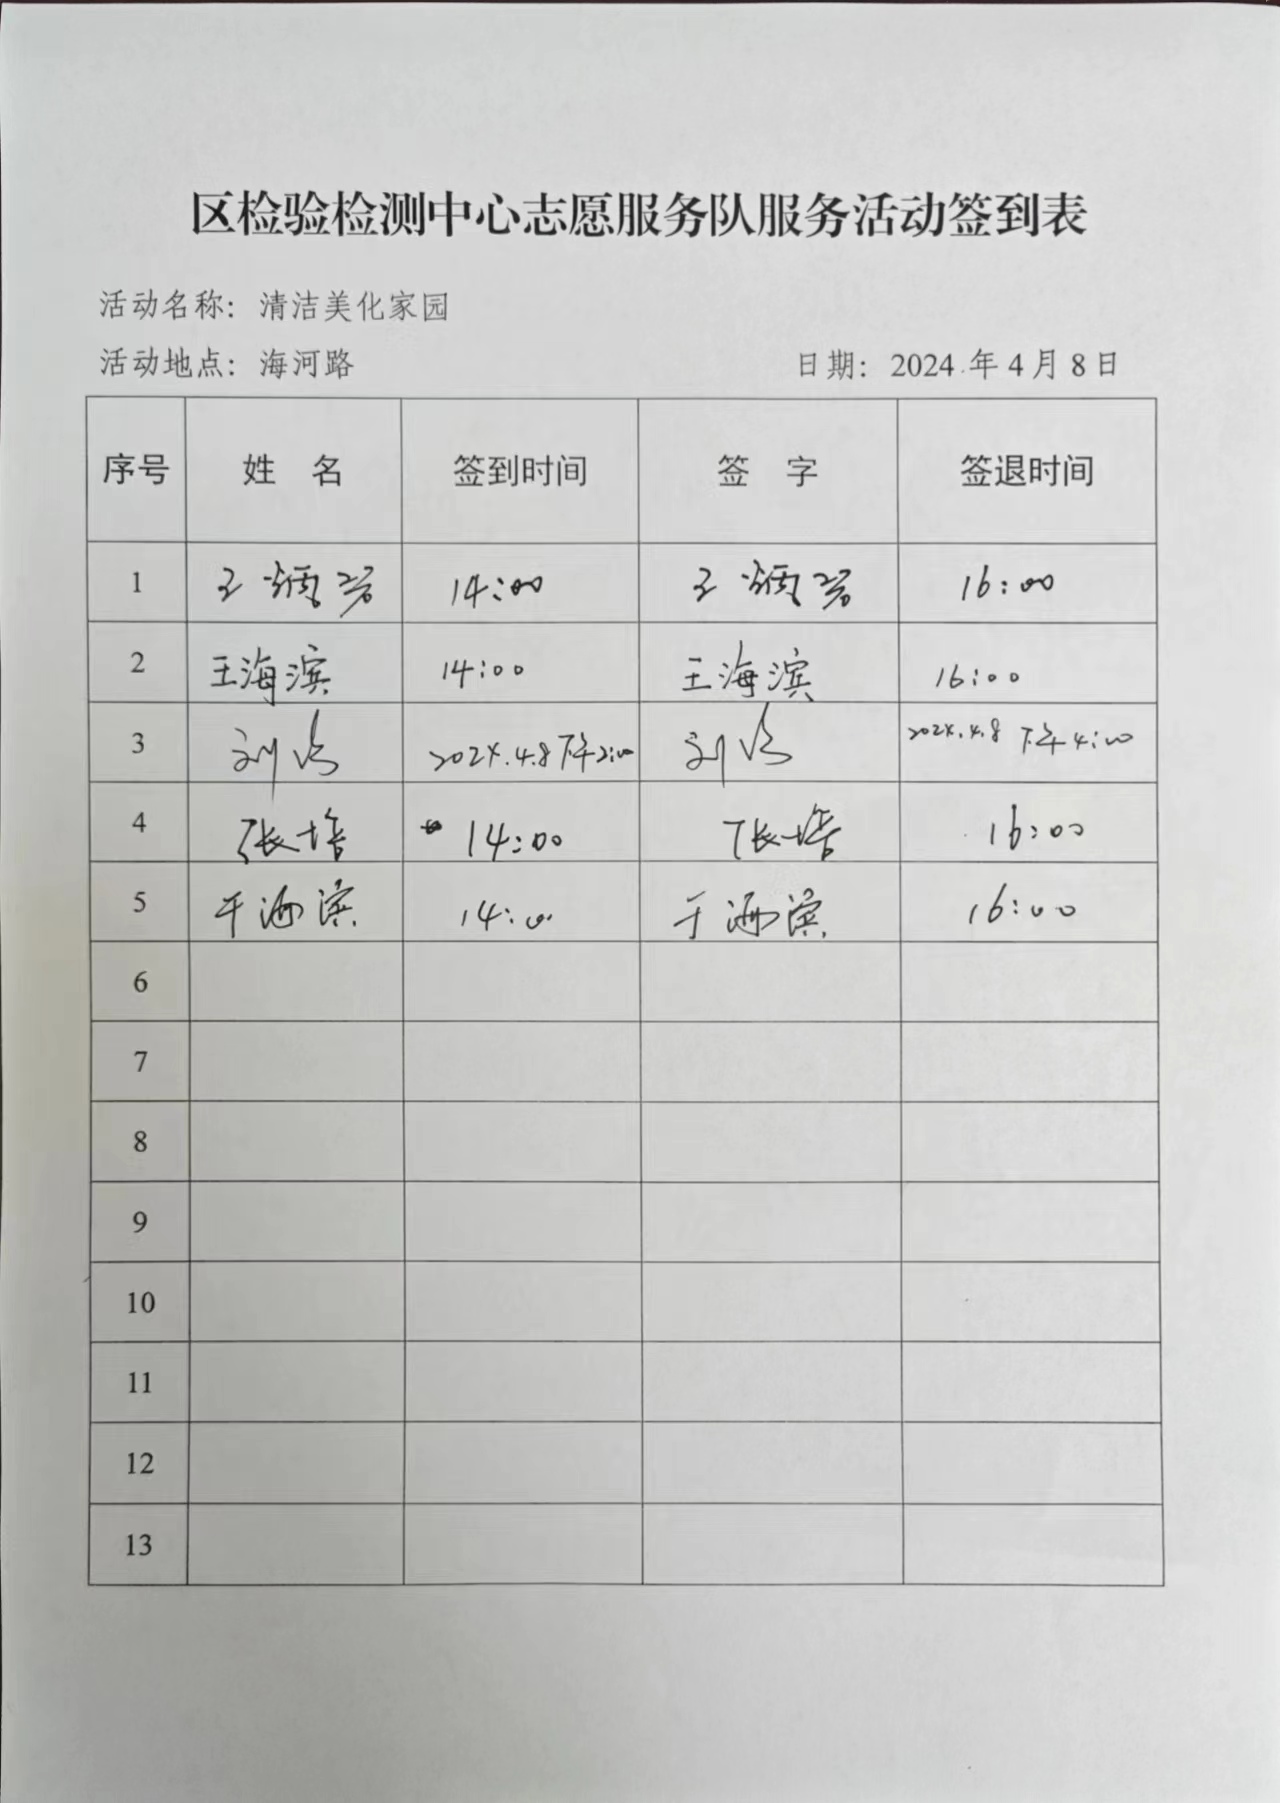 区检验检测中心志愿服务队服务活动签到表
活动名称：清洁美化家园
活动地点：海河路 日期：2024年4月8日
序号 姓名 签到时间 签字 签退时间
1 王炳 14:00 王炳 16:00
2 王海滨 14:00 王海滨 16:00
3 刘 2024.4.8下午2:00 刘 2024.4.8 下午4:00
4 张培 14:00 张培 16:00
5 于洒滨 14:00 于洒滨 16:00
6
7
8
9
10
11
12
13